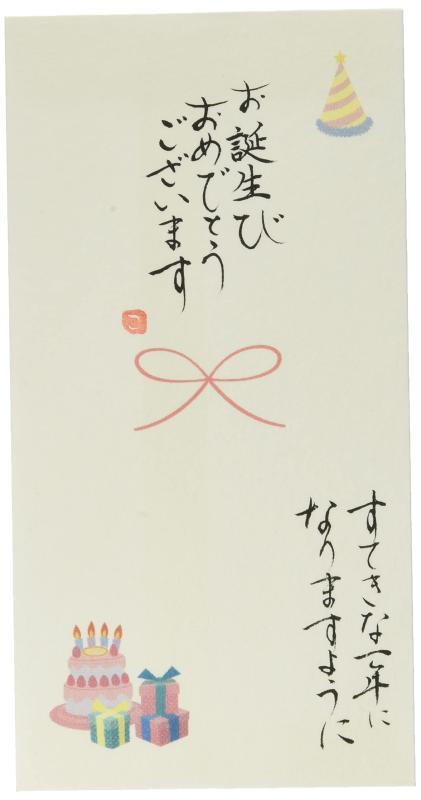 お誕生び
おめでとう
ございます
すてきな一年に
なりますように